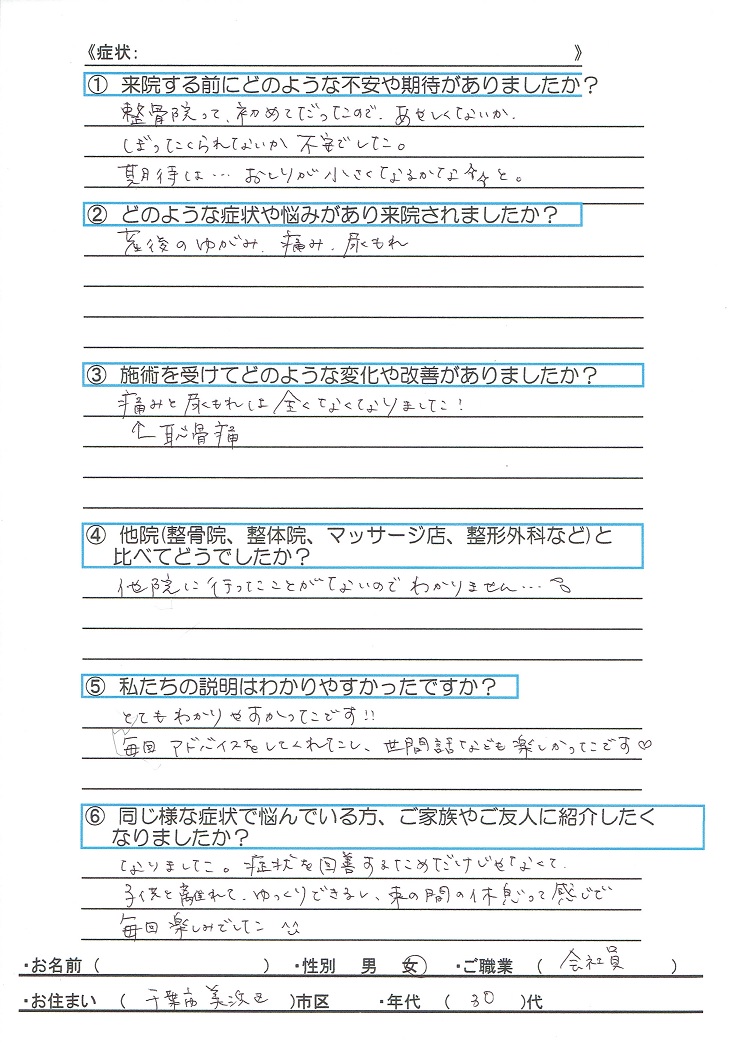 《症状: 》
① 来院する前にどのような不安や期待がありましたか？
整骨院って、初めてだったので、あやしくないか、
ぼったくられないか 不安でした。
期待は… おしりが小さくなるかな々々と。
② どのような症状や悩みがあり来院されましたか？
産後のゆがみ、痛み、尿もれ
③ 施術を受けてどのような変化や改善がありましたか？
痛みと尿もれは全くなくなりました！
↑恥骨痛
④ 他院(整骨院、整体院、マッサージ店、整形外科など)と
比べてどうでしたか？
他院に行ったことがないのでわかりません…
⑤ 私たちの説明はわかりやすかったですか？
とてもわかりやすかったです!!
毎回 アドバイスをしてくれたし、世間話なども楽しかったです♡
⑥ 同じ様な症状で悩んでいる方、ご家族やご友人に紹介したく
なりましたか？
なりました。症状を回善するためだけじゃなくて、
子供と離れて、ゆっくりできるし、束の間の休息って感じで
毎回楽しみでした
・お名前 ( ) ・性別 男 女 ・ご職業 ( 会社員 )
・お住まい ( 千葉市美浜区 )市区 ・年代 ( 30 )代